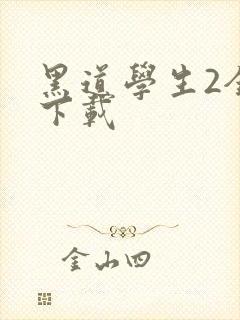 黑道學生2全
下載
金山四